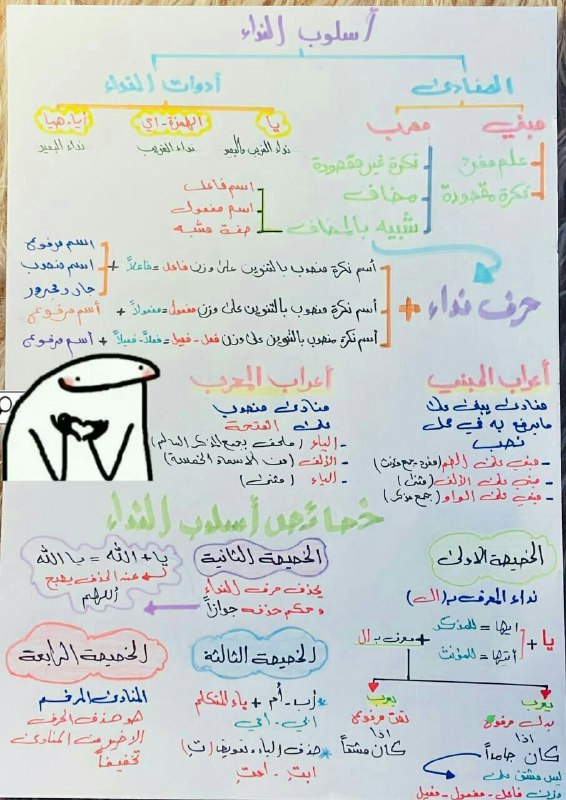 أسلوب النداء
المنادى
أدوات النداء
مبني
معرب
يا
الهمزة - أي
أيا - هيا
نداء القريب والبعيد
نداء القريب
نداء البعيد
علم مفرد
نكرة مقصودة
نكرة غير مقصودة
مضاف
شبيه بالمضاف
اسم فاعل
اسم مفعول
صفة مشبه
حرف نداء +
أسم نكرة منصوب بالتنوين على وزن فاعل = فاعلاً +
اسم مرفوع
اسم منصوب
جار ومجرور
أسم نكرة منصوب بالتنوين على وزن مفعول = مفعولاً + أسم مرفوع
أسم نكرة منصوب بالتنوين على وزن فعل - فعيل = فعلاً - فعيلاً + أسم مرفوع
أعراب المبني
منادى يبنى على
مايرفع به في محل
نصب
- مبني على الضم (مفرد، جمع مؤنث)
- مبني على الألف (مثنى)
- مبني على الواو (جمع مذكر)
أعراب المعرب
منادى منصوب
على الفتحة
- الياء (ملحق بجمع المذكر السالم)
- الألف (من الاسماء الخمسة)
- الياء (مثنى)
خصائص أسلوب النداء
الخصيصة الاولى
نداء المعرف بـ (ال)
يا +
ايها = للمذكر
أيتها = للمؤنث
+ معرف بـ ال
يعرب
بدل مرفوع
اذا
كان جامداً
ليس مشتق على
وزن فاعل - مفعول - فعيل
يعرب
نعت مرفوع
اذا
كان مشتقاً
الخصيصة الثانية
يحذف حرف النداء
وحكم حذفه جوازاً
يا + الله = يا الله
عند الحذف يصبح
اللهم
الخصيصة الثالثة
أب - أم + ياء للمتكلم
ابي - امي
حذف الياء وتعويض (تِ)
ابتِ - امتِ
الخصيصة الرابعة
المنادى المرخم
هو حذف الحرف
الاخير من المنادى
تخفيفاً